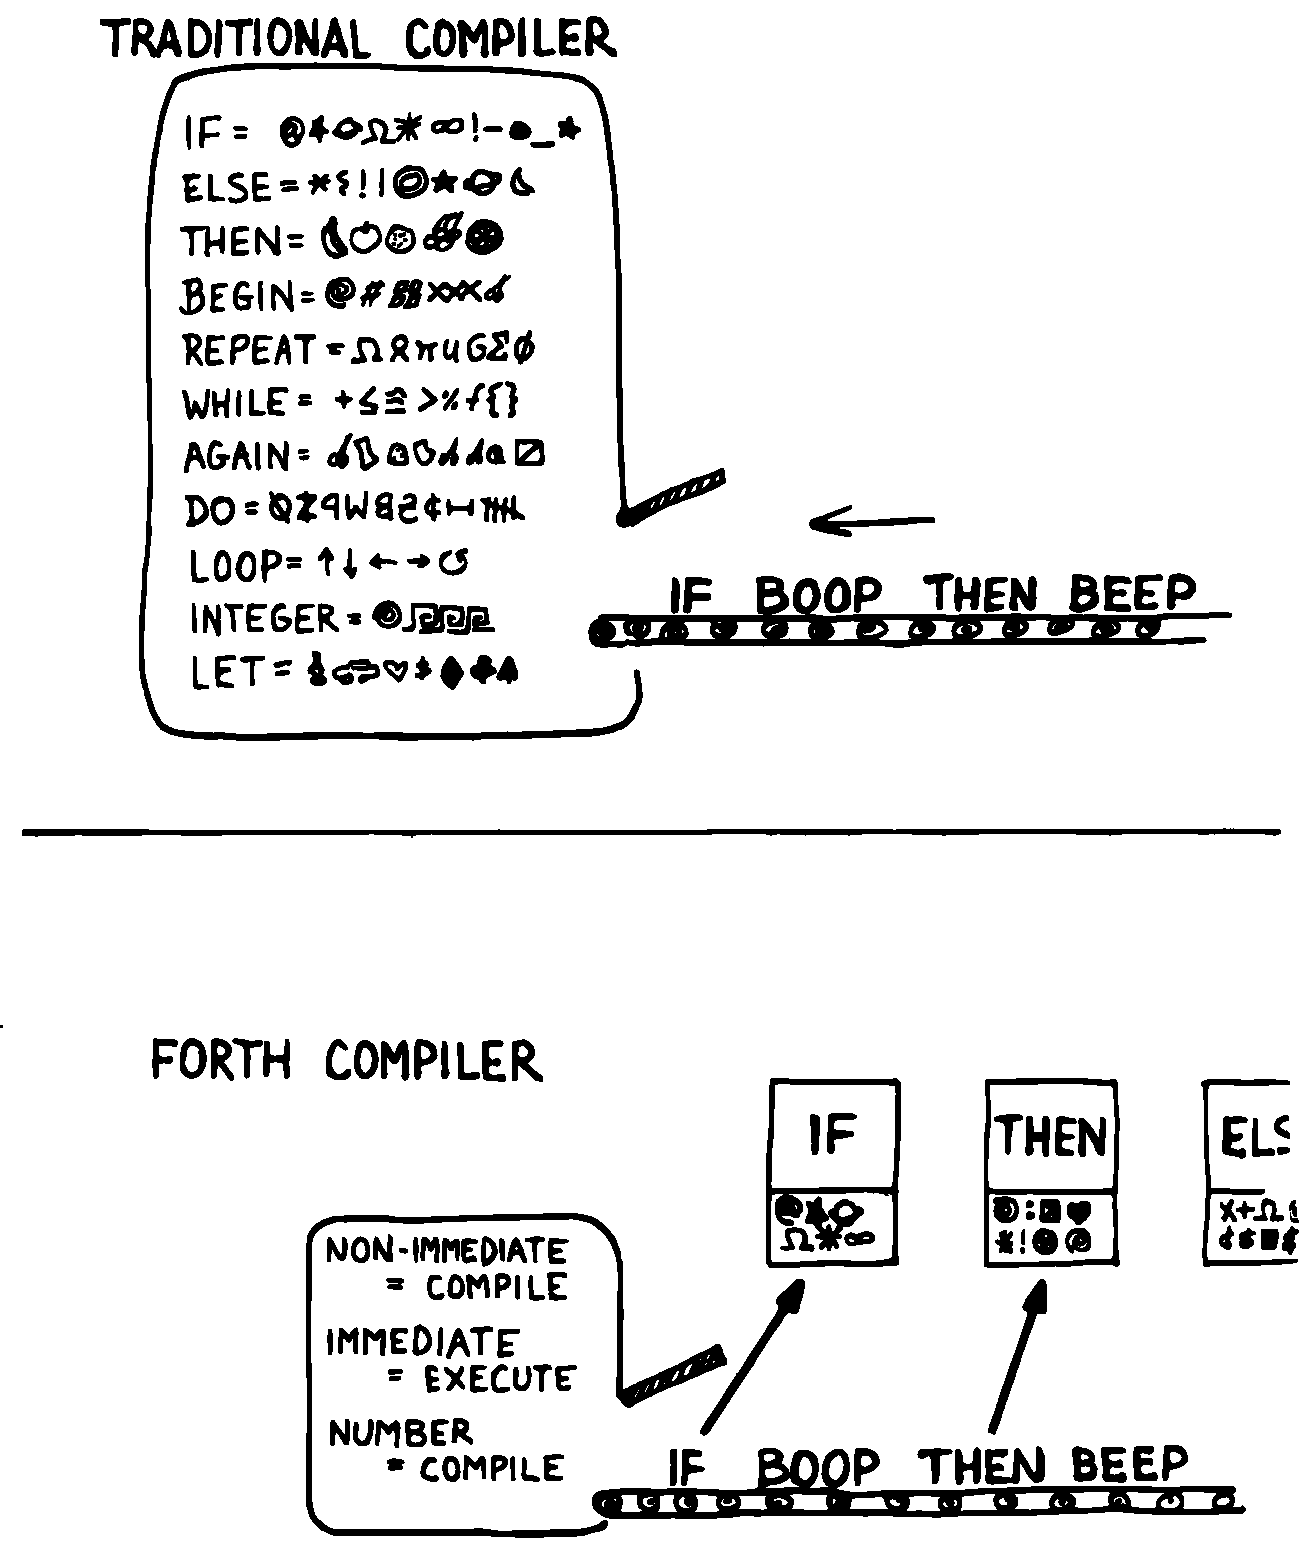 TRADITIONAL COMPILER
IF =
ELSE =
THEN =
BEGIN =
REPEAT =
WHILE =
AGAIN =
DO =
LOOP =
INTEGER =
LET =
IF BOOP THEN BEEP
FORTH COMPILER
IF
THEN
ELS
NON-IMMEDIATE
= COMPILE
IMMEDIATE
= EXECUTE
NUMBER
= COMPILE
IF BOOP THEN BEEP